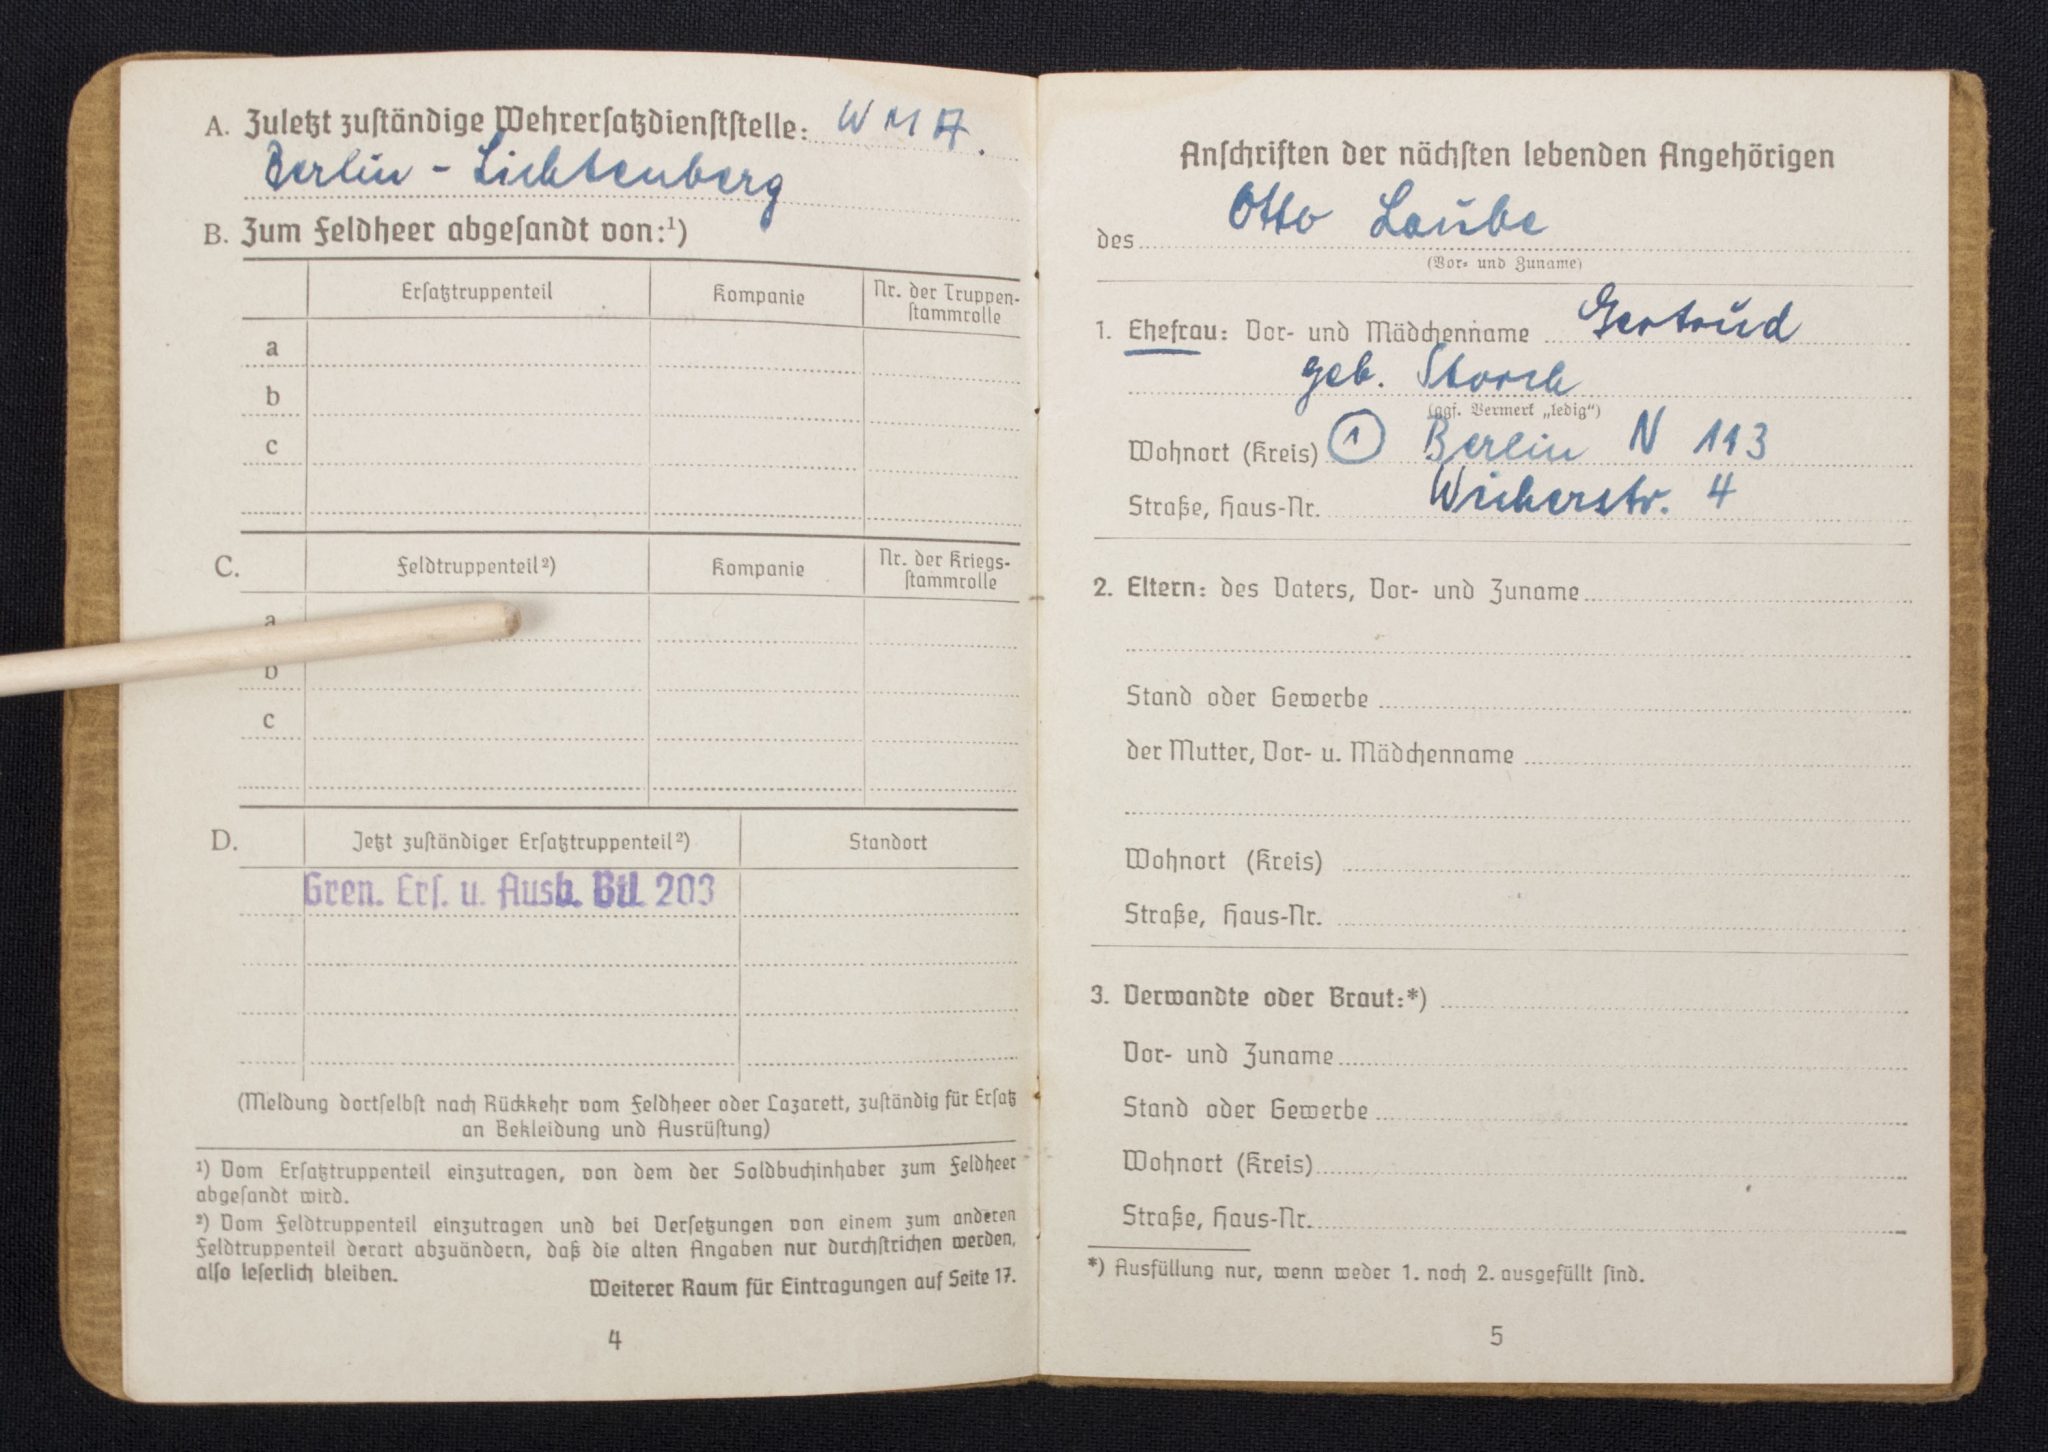 A. Zuletzt zuständige Wehrersatzdienststelle: W M A.
Berlin - Lichtenberg
B. Zum Feldheer abgesandt von:¹)
Ersatztruppenteil Kompanie Nr. der Truppen-
stammrolle
a
b
c
C. Feldtruppenteil²) Kompanie Nr. der Kriegs-
stammrolle
a
b
c
D. Jetzt zuständiger Ersatztruppenteil²) Standort
Gren. Ers. u. Ausb. Btl. 203
(Meldung dortselbst nach Rückkehr vom Feldheer oder Lazarett, zuständig für Ersatz
an Bekleidung und Ausrüstung)
¹) Vom Ersatztruppenteil einzutragen, von dem der Soldbuchinhaber zum Feldheer
abgesandt wird.
²) Vom Feldtruppenteil einzutragen und bei Versetzungen von einem zum anderen
Feldtruppenteil derart abzuändern, daß die alten Angaben nur durchstrichen werden,
also leserlich bleiben.
Weiterer Raum für Eintragungen auf Seite 17.
4
Anschriften der nächsten lebenden Angehörigen
des Otto Laube
(Vor- und Zuname)
1. Ehefrau: Vor- und Mädchenname Gertrud
geb. Storch
(ggf. Vermerk „ledig“)
Wohnort (Kreis) 1 Berlin N 113
Straße, Haus-Nr. Wicherstr. 4
2. Eltern: des Vaters, Vor- und Zuname
Stand oder Gewerbe
der Mutter, Vor- u. Mädchenname
Wohnort (Kreis)
Straße, Haus-Nr.
3. Verwandte oder Braut:*)
Vor- und Zuname
Stand oder Gewerbe
Wohnort (Kreis)
Straße, Haus-Nr.
*) Ausfüllung nur, wenn weder 1. noch 2. ausgefüllt sind.
5